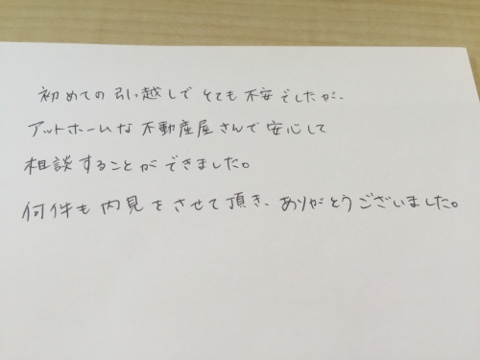 初めての引い越しでとても不安でしたが、
アットホームな不動産屋さんで安心して
相談することができました。
何件も内見をさせて頂き、ありがとうございました。